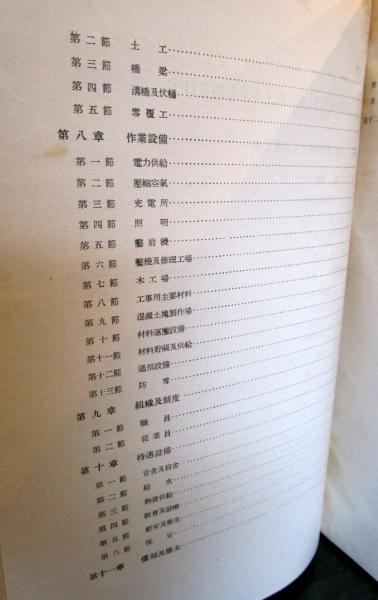 第二節 土工
第三節 橋梁
第四節 溝橋及伏樋
第五節 雪覆工
第八章 作業設備
第一節 電力供給
第二節 壓縮空氣
第三節 充電所
第四節 照明
第五節 鑿岩機
第六節 鑿燒及修理工場
第七節 木工場
第八節 工事用主要材料
第九節 混凝土塊製作場
第十節 材料運搬設備
第十一節 材料貯藏及供給
第十二節 通信設備
第十三節 防雪
第九章 組織及制度
第一節 職員
第二節 從業員
第十章 待遇設備
第一節 官舍及宿舍
第二節 給水
第三節 物資供給
第四節 敎育及
第五節
第六節 保安
第十一章
第十二